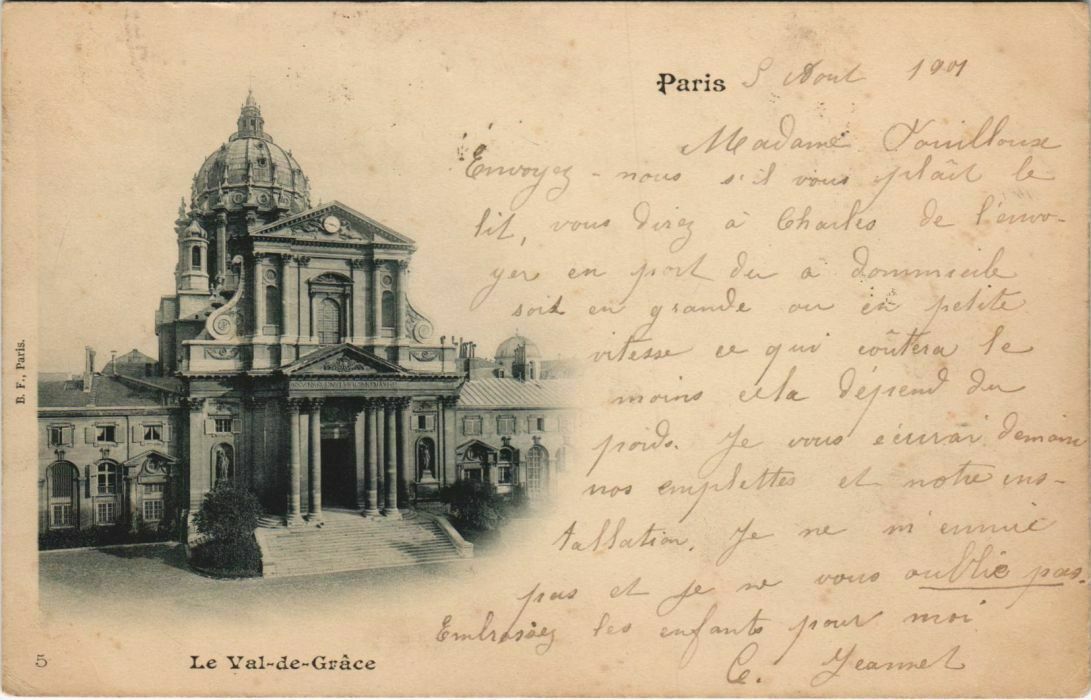 Paris 5 Aout 1901
Madame Pouilloux
Envoyez-nous s'il vous plaît le
lit, vous direz à Charles de l'envo-
yer en port du à dommicile
soit en grande ou en petite
vitesse ce qui coûtera le
moins cela dépend du
poids. Je vous écrirai demain
nos emplettes et notre ins-
tallation. Je ne m'ennuie
pas et je ne vous oublie pas.
Embrassez les enfants pour moi
C. Jeannet
B. F., Paris.
5 Le Val-de-Grâce